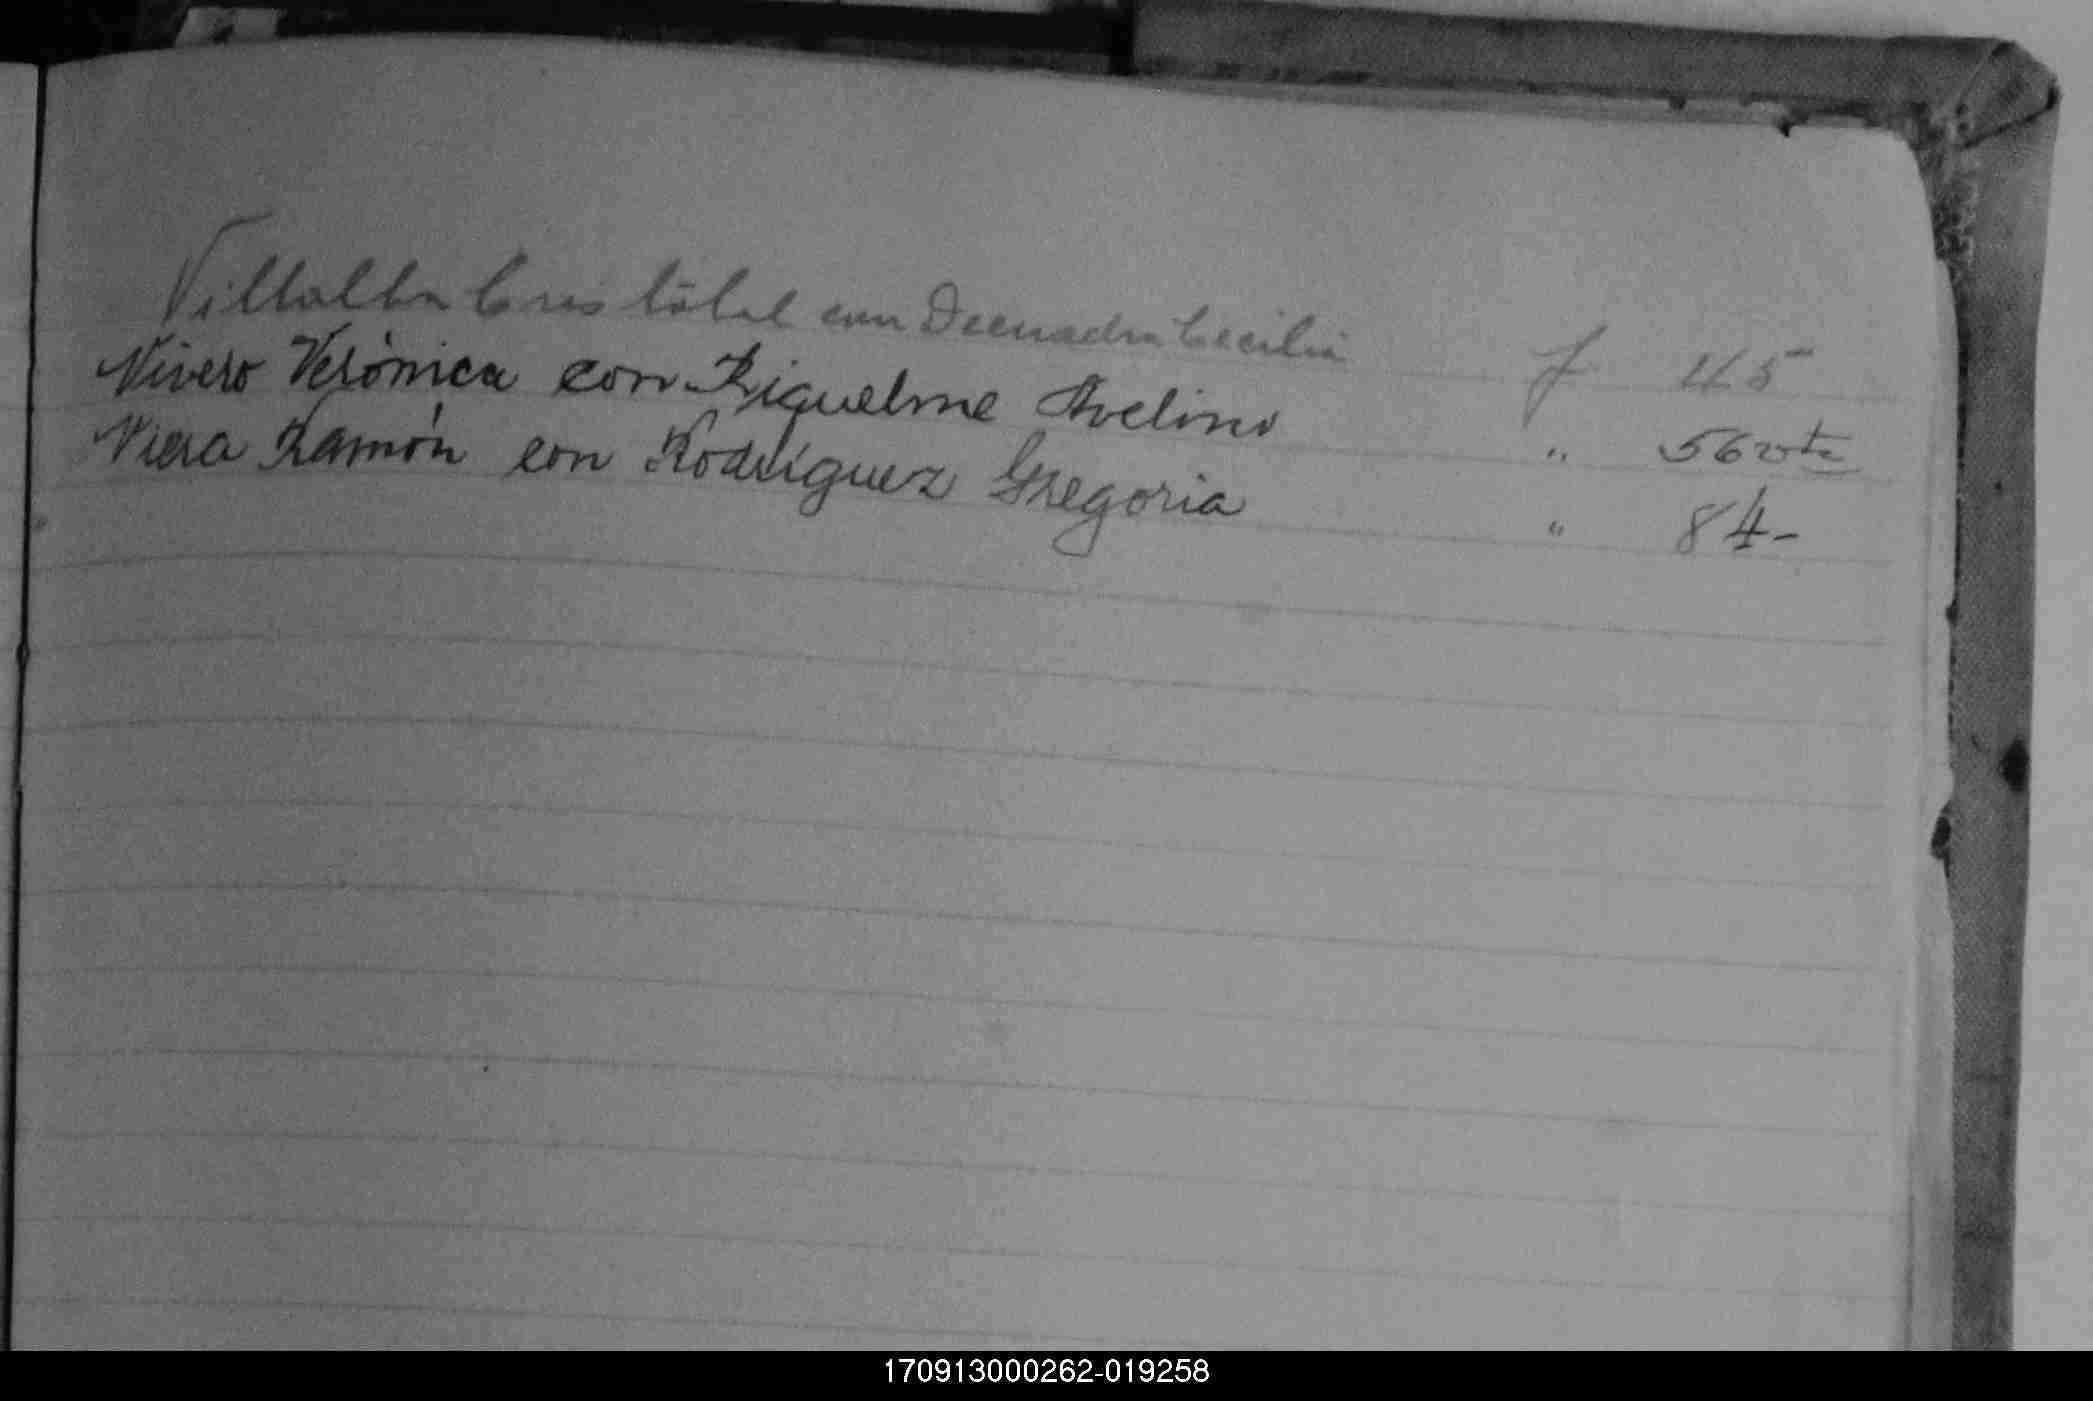 Villalba Cristóbal con Cecilia f 45
Vivero Verónica con Riquelme Avelino " 56 vta
Viera Ramón con Rodríguez Gregoria " 84-
170913000262-019258